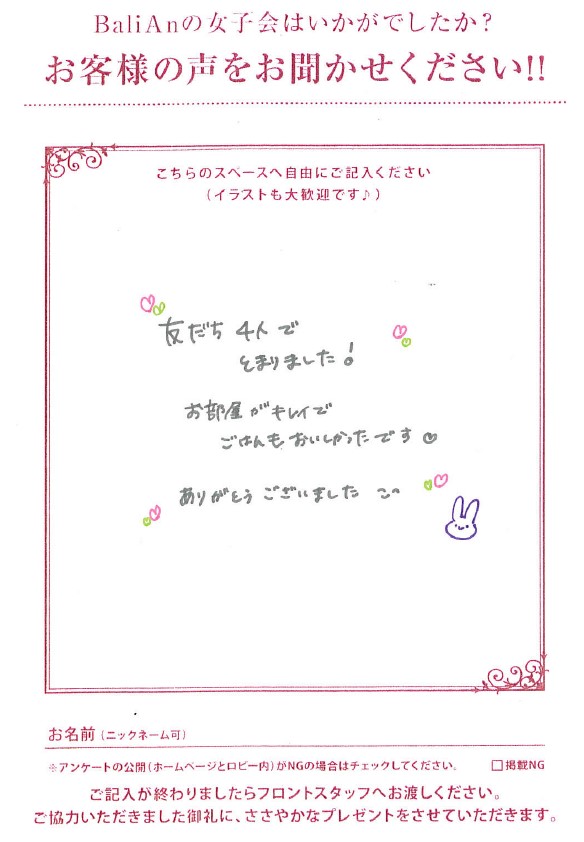 BaliAnの女子会はいかがでしたか?
お客様の声をお聞かせください!!
こちらのスペースへ自由にご記入ください
(イラストも大歓迎です♪)
友だち 4人で
とまりました!
お部屋がキレイで
ごはんもおいしかったです♡
ありがとうございました
お名前(ニックネーム可)
※アンケートの公開(ホームページとロビー内)がNGの場合はチェックしてください。 □掲載NG
ご記入が終わりましたらフロントスタッフへお渡しください。
ご協力いただきました御礼に、ささやかなプレゼントをさせていただきます。